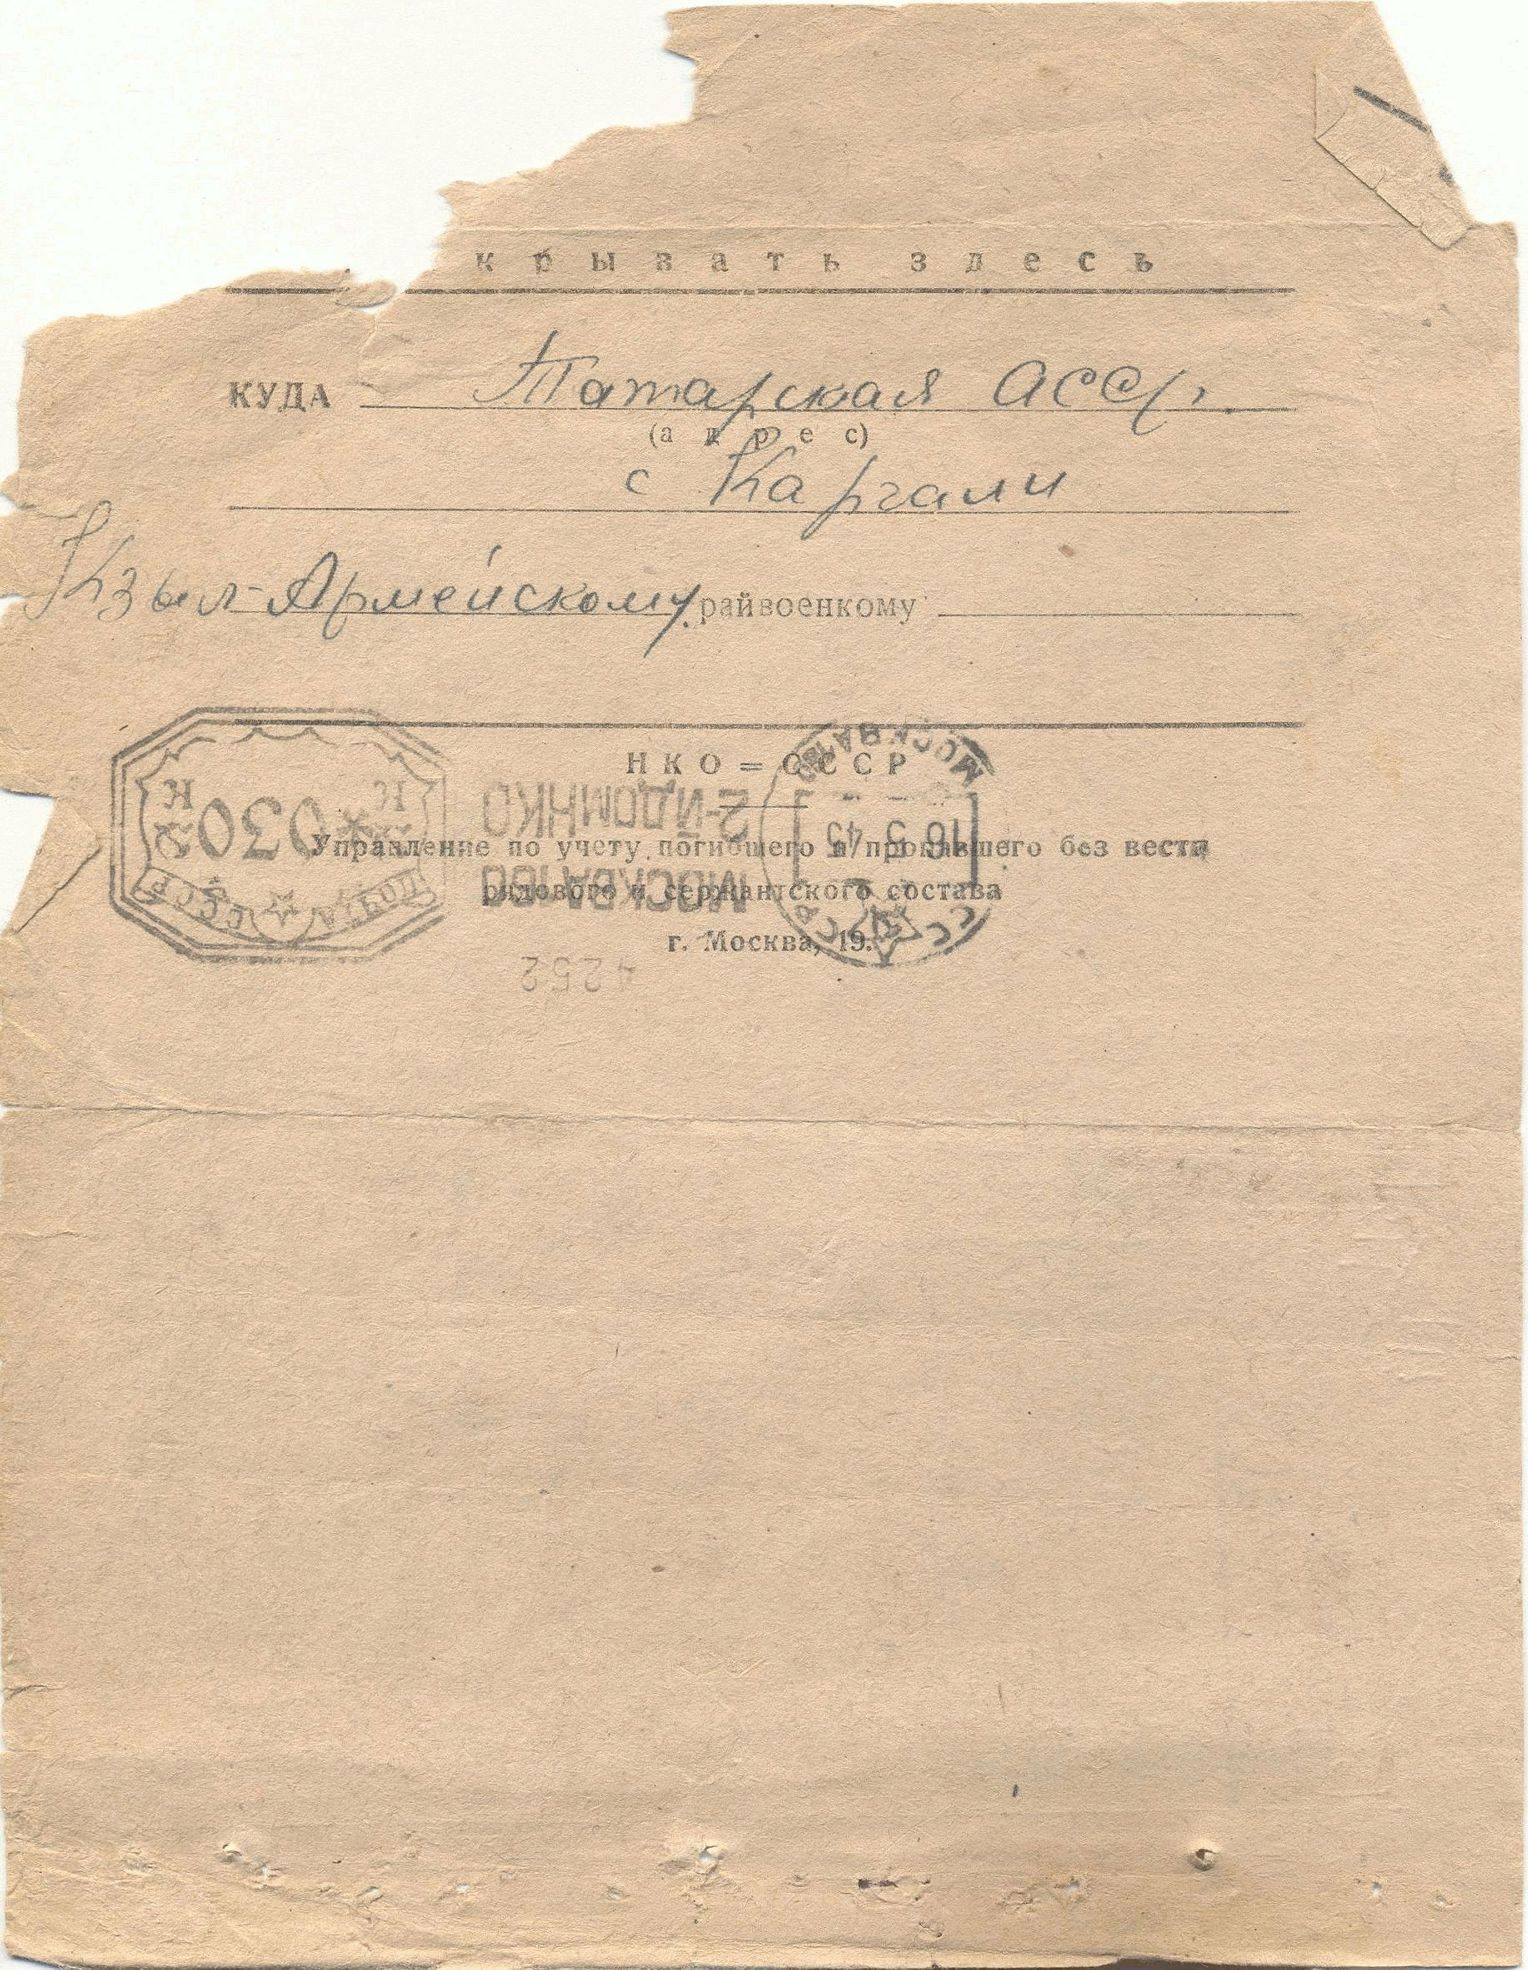 крывать здесь
КУДА Татарская АССР.
(адрес)
с Каргали
Кзыл-Армейскому райвоенкому
НКО=СССР
Управление по учету погибшего и пропавшего без вести
рядового и сержантского состава
г. Москва, 19.
ПОЧТА СССР
К К
*030
МОСКВА 160
2-Й ДОМ НКО
4252
МОСКВА 160
16 3 43
СССР